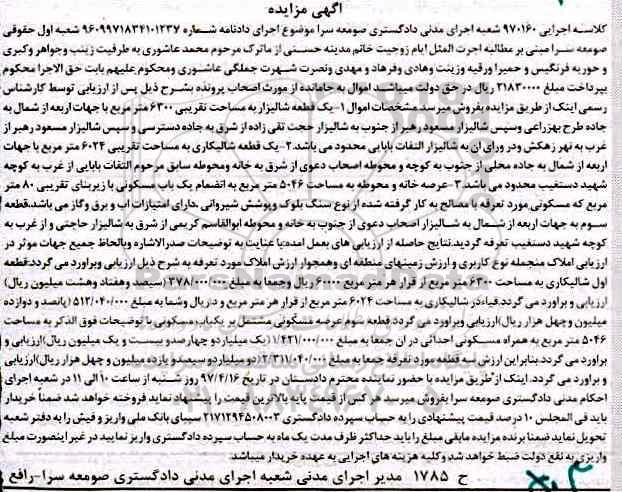 آگهی مزایده
کلاسه اجرایی ۹۷۰۱۶۰ شعبه اجرای مدنی دادگستری صومعه سرا موضوع اجرای دادنامه شماره ۹۶۰۹۹۷۱۸۳۴۱۰۱۲۳۷ شعبه اول حقوقی
صومعه سرا مبنی بر مطالبه اجرت المثل ایام زوجیت خانم مدینه حسنی از ماترک مرحوم محمد عاشوری به طرفیت زینب وجواهر وکبری
و حوریه فرنگیس و حمیرا ورقیه وزینت وهادی وفرهاد و مهدی ونصرت شهرت جملگی عاشوری ومحکوم علیهم بابت حق الاجرا محکوم
بپرداخت مبلغ ۲۱۸۳۰۰۰۰ ریال در حق دولت میباشد اموال به جامانده از مورث اصحاب پرونده بشرح ذیل پس از ارزیابی توسط کارشناس
رسمی اینک از طریق مزایده بفروش میرسد مشخصات اموال ۱-یک قطعه شالیزار به مساحت تقریبی ۶۳۰۰ متر مربع با جهات اربعه از شمال به
جاده طرح بهزراعی وسپس شالیزار مسعود رهبر از جنوب به شالیزار حجت تقی زاده از شرق به جاده دسترسی و سپس شالیزار مسعود رهبر از
غرب به نهر زهکش ودر ورای ان به شالیزار التفات بابایی محدود می باشد.۲-یک قطعه شالیکاری به مساحت تقریبی ۶۰۲۴ متر مربع با جهات
اربعه از شمال به جاده محلی از جنوب به کوچه و محوطه اصحاب دعوی از شرق به خانه ومحوطه سابق مرحوم التفات بابایی از غرب به کوچه
شهید دستغیب محدود می باشد.۳-عرصه خانه و محوطه به مساحت ۵۰۴۶ متر مربع به انضمام یک باب مسکونی با زیربنای تقریبی ۸۰ متر
مربع که مسکونی مورد تعرفه با مصالح به کار گرفته شده از نوع سنگ بلوک وپوشش شیروانی .دارای امتیازات اب و برق وگاز می باشد.قطعه
سوم به جهات اربعه از شمال به شالیزار اصحاب دعوی از جنوب به خانه و محوطه ابوالقاسم کریمی از شرق به شالیزار حاجتی و از غرب به
کوچه شهید دستغیب تعرفه گردید.نتایج حاصله از ارزیابی های بعمل امده:با عنایت به توضیحات صدرالاشاره وبالحاظ جمیع جهات موثر در
ارزیابی املاک منجمله نوع کاربری و ارزش زمینهای منطقه ای وهمجوار ارزش املاک مورد تعرفه به شرح ذیل ارزیابی وبراورد می گردد:قطعه
اول شالیکاری به مساحت ۶۳۰۰ متر مربع از قرار هر متر مربع ۶۰۰۰۰ ریال وجمعا به مبلغ ۳۷۸/۰۰۰/۰۰۰ (سیصد وهفتاد وهشت میلیون ریال)
ارزیابی و براورد می گردد.قطعه دوم شالیکاری به مساحت ۶۰۲۴ متر مربع از قرار هر متر مربع و دار ریال وشما به مبلغ ۵۱۲/۰۴۰/۰۰۰ (پانصد و دوازده
میلیون و چهل هزار ریال)ارزیابی وبراورد می گردد.قطعه سوم عرصه مسکونی مشتمل بر یکباب مسکونی با توضیحات فوق الذکر به مساحت
۵۰۴۶ متر مربع به همراه مسکونی احداثی در ان جمعا به مبلغ ۱/۴۲۱/۰۰۰/۰۰۰ (یک میلیارد و چهارصدو بیست و یک میلیون ریال)ارزیابی و
براورد می گردد.بنابراین ارزش سه قطعه مورد تعرفه جمعا به مبلغ ۲/۳۱۱/۰۴۰/۰۰۰ (دو میلیارد و سیصدو یازده میلیون و چهل هزار ریال)ارزیابی
و براورد می گردد. اینک از طریق مزایده با حضور نماینده محترم دادستان در تاریخ ۹۷/۴/۱۶ روز شنبه از ساعت ۱۰ الی ۱۱ در شعبه اجرای
احکام مدنی دادگستری صومعه سرا بفروش میرسد هر کس از قیمت پایه بالاترین قیمت را پیشنهاد نماید فروخته خواهد شد ضمناً خریدار
باید فی المجلس ۱۰ درصد قیمت پیشنهادی را به حساب سپرده دادگستری ۲۱۷۱۲۹۴۵۰۸۰۰۳ سیبای بانک ملی واریز و فیش را به دفتر شعبه
تحویل نماید ضمنا برنده مزایده مابقی مبلغ را باید حداکثر ظرف مدت یک ماه به حساب سپرده دادگستری واریز نمایید در غیر اینصورت مبلغ
واریزی به نفع دولت ضبط خواهد شد وکلیه هزینه های اجرایی به عهده خریدار میباشد.
ح ۱۷۸۵ مدیر اجرای مدنی شعبه اجرای مدنی دادگستری صومعه سرا-رافع